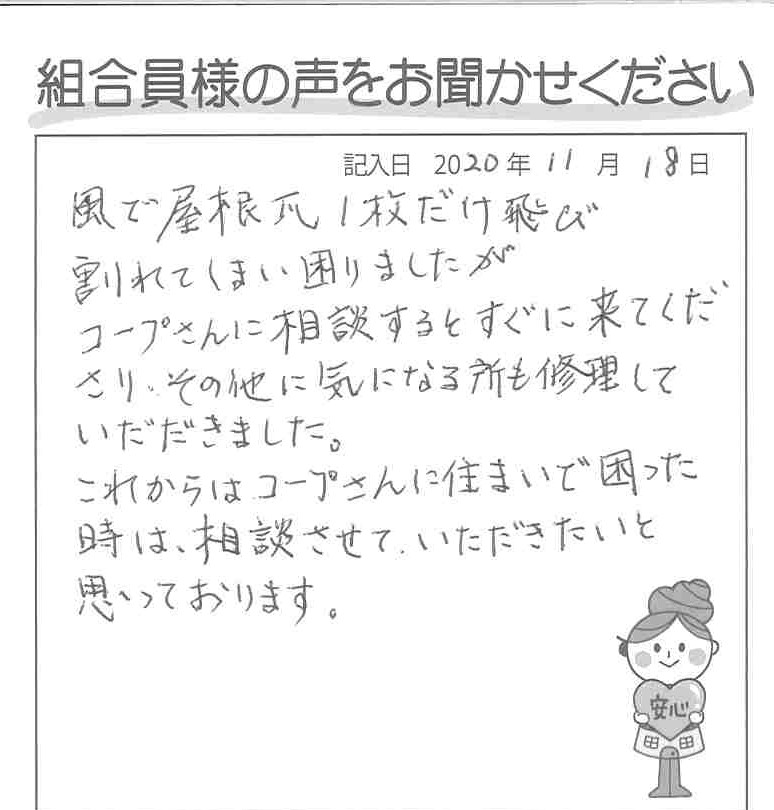 組合員様の声をお聞かせください
記入日 2020年 11 月 18日
風で屋根瓦1枚だけ飛び
割れてしまい困りましたが
コープさんに相談するとすぐに来てくだ
さり、その他に気になる所も修理して
いただだきました。
これからは、コープさんに住まいで困った
時は、相談させて、いただきたいと
思っております。
安心